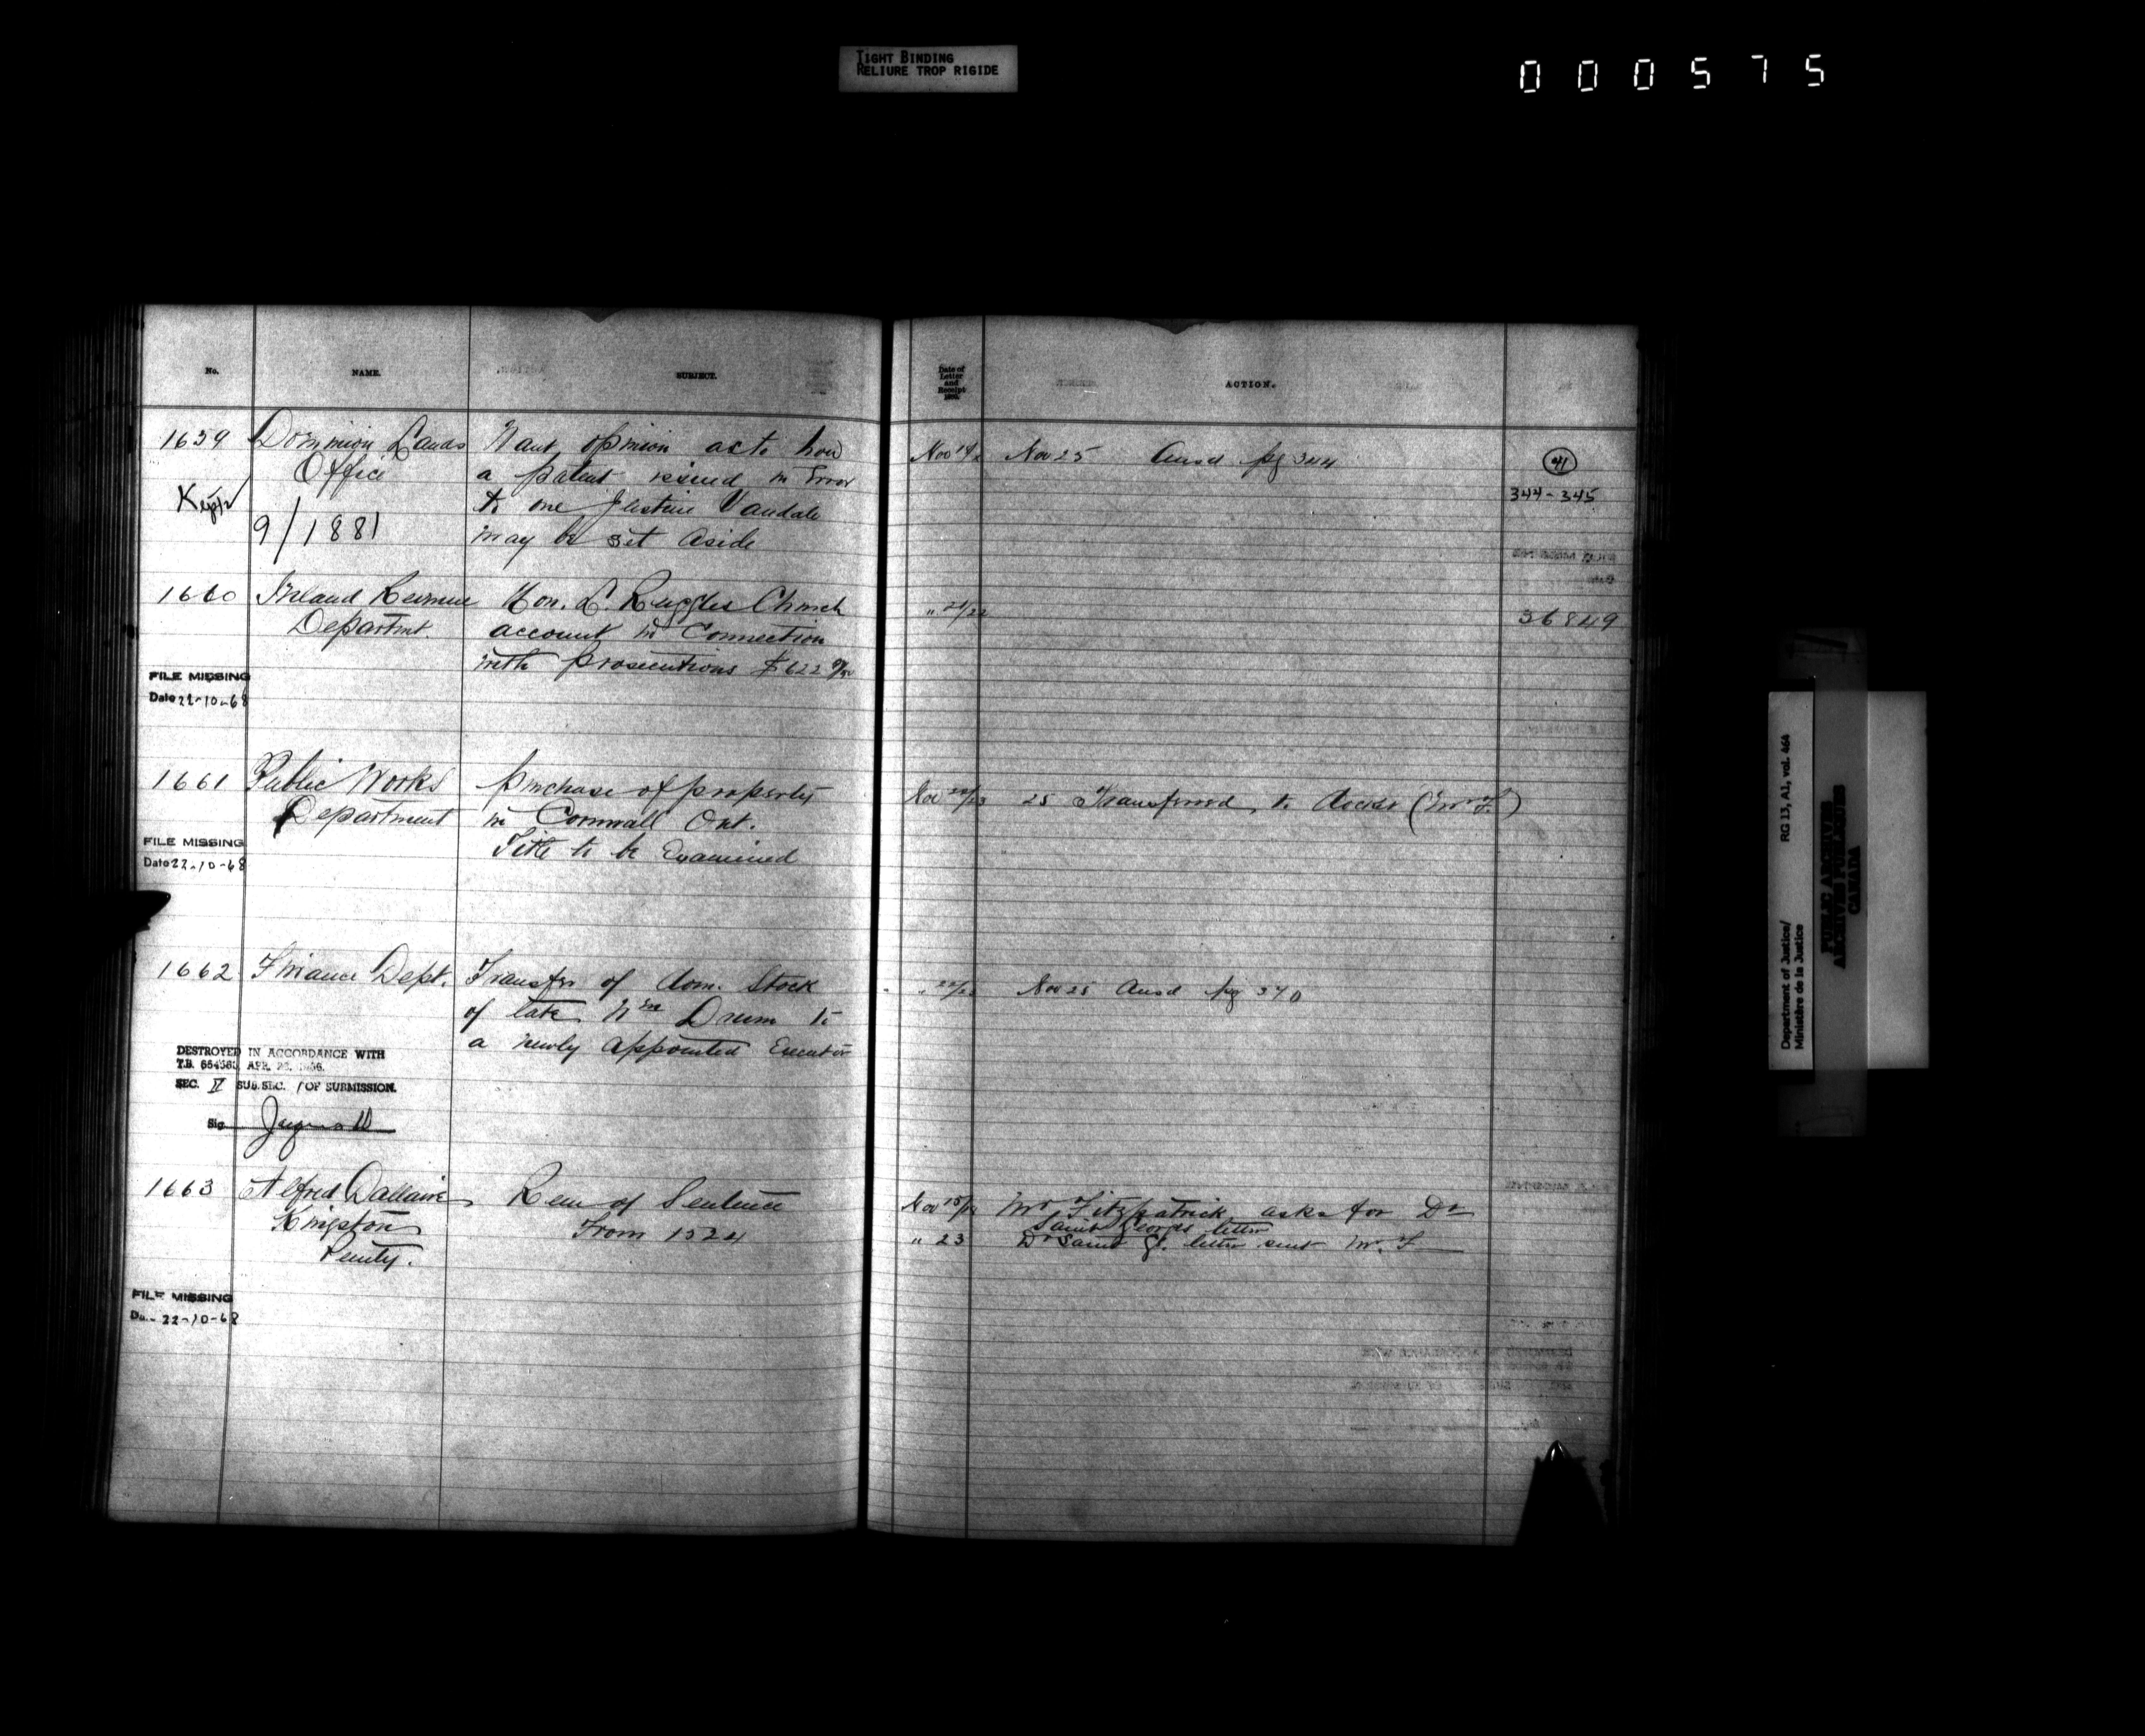 TIGHT BINDING
RELIURE TROP RIGIDE
000575
No. NAME. SUBJECT.
Date of Letter and Receipt ACTION.
1659 Dominion Lands Want opinion as to how
Office a patent issued in Error
Kept to one Justine Vandale
9/1881 may be set aside
Nov 19 Nov 25 Ansd pg 344
41
344-345
1660 Inland Revenue Hon. L. Ruggles Church
Departmt. account in Connection
with prosecutions $622
FILE MISSING
Date 22-10-68
" 21/22
36849
1661 Public Works purchase of property
Department in Cornwall Ont.
Title to be Examined
FILE MISSING
Date 22-10-68
Nov 22/23 25 Transferred to (Mr F.)
1662 Finance Dept. Transfer of Dom. Stock
of late Wm Drum to
a newly appointed Executor
DESTROYED IN ACCORDANCE WITH
T.B. APR.
SEC. II SUB.SEC. 1 OF SUBMISSION.
Sig.
" 22/23 Nov 25 Ansd pg 340
1663 Alfred Dallaire Rem of Sentence
Kingston From 1524
Penity.
FILE MISSING
22-10-68
Nov 15/ Mr Fitzpatrick asks for Dr
Saint Georges letter
" 23 Dr Saint G. letter sent Mr. F
Department of Justice/ RG 13, A1, vol. 464
Ministère de la Justice
PUBLIC ARCHIVES
ARCHIVES PUBLIQUES
CANADA